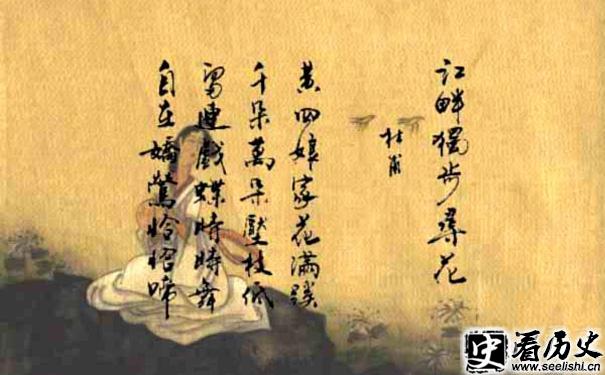 江畔獨步尋花
杜甫
黄四娘家花滿蹊
千朵萬朵壓枝低
留連戲蝶時時舞
自在嬌鶯恰恰啼
史 看历史
www.seelishi.cn